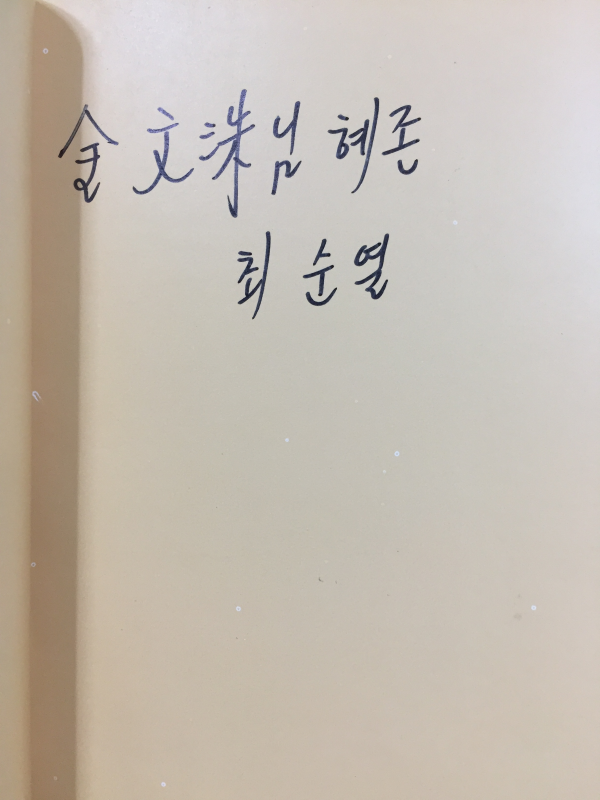 金文洙님 혜존
최순열